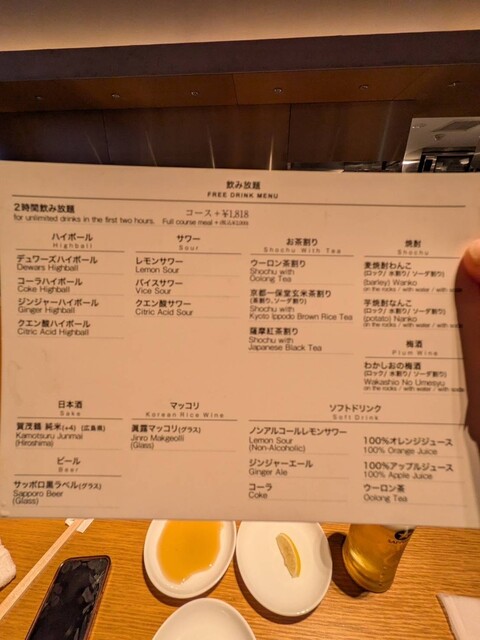 飲み放題
FREE DRINK MENU
2時間飲み放題 コース+¥1,818
for unlimited drinks in the first two hours. Full course meal +
ハイボール
Highball
デュワーズハイボール
Dewars Highball
コーラハイボール
Coke Highball
ジンジャーハイボール
Ginger Highball
クエン酸ハイボール
Citric Acid Highball
サワー
Sour
レモンサワー
Lemon Sour
バイスサワー
Vice Sour
クエン酸サワー
Citric Acid Sour
お茶割り
Shochu With Tea
ウーロン茶割り
Shochu with
Oolong Tea
京都一保堂玄米茶割り
(茶割り、ソーダ割り)
Shochu with
Kyoto Ippodo Brown Rice Tea
薩摩紅茶割り
Shochu with
Japanese Black Tea
焼酎
Shochu
麦焼酎わんこ
(ロック/ 水割り/ ソーダ割り)
(barley) Wanko
on the rocks / with water / with soda
芋焼酎なんこ
(ロック/ 水割り/ ソーダ割り)
(potato) Nanko
on the rocks / with water / with soda
梅酒
Plum Wine
わかしおの梅酒
(ロック/ 水割り/ ソーダ割り)
Wakashio No Umesyu
on the rocks / with water / with soda
日本酒
Sake
賀茂鶴 純米(+4) (広島県)
Kamotsuru Junmai
(Hiroshima)
ビール
Beer
サッポロ黒ラベル(グラス)
Sapporo Beer
(Glass)
マッコリ
Korean Rice Wine
眞露マッコリ(グラス)
Jinro Makgeolli
(Glass)
ソフトドリンク
Soft Drink
ノンアルコールレモンサワー
Lemon Sour
(Non-Alcoholic)
ジンジャーエール
Ginger Ale
コーラ
Coke
100%オレンジジュース
100% Orange Juice
100%アップルジュース
100% Apple Juice
ウーロン茶
Oolong Tea